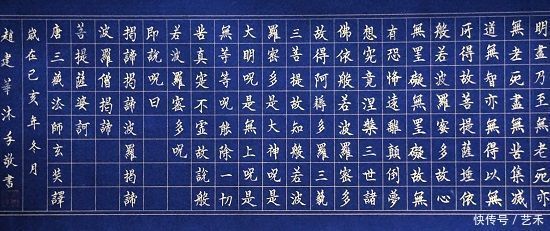 明盡乃至無老死亦
無老死盡無苦集滅
道無智亦無得以無
所得故菩提薩埵依
般若波羅蜜多故心
無罣礙無罣礙故無
有恐怖遠離顛倒夢
想究竟涅槃三世諸
佛依般若波羅蜜多
故得阿耨多羅三藐
三菩提故知般若波
羅蜜多是大神呪是
大明呪是無上呪是
無等等呪能除一切
苦真實不虛故說般
若波羅蜜多呪
即說呪曰
揭諦揭諦波羅揭諦
波羅僧揭諦
菩提薩婆訶
唐三藏法師玄奘譯
歲在己亥年冬月
趙建華沐手敬書
快传号/艺禾